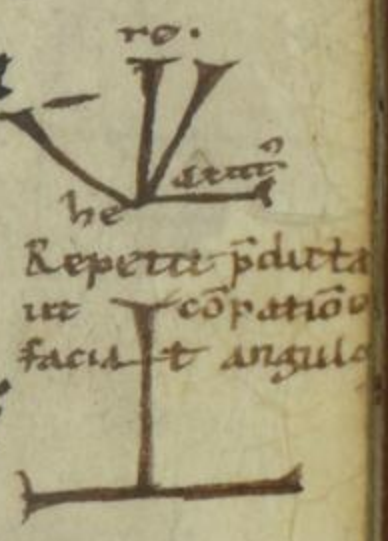 ro.
acut᷒
he
Repetit p̄dicta
ut cōpatiōe
facia t angulo